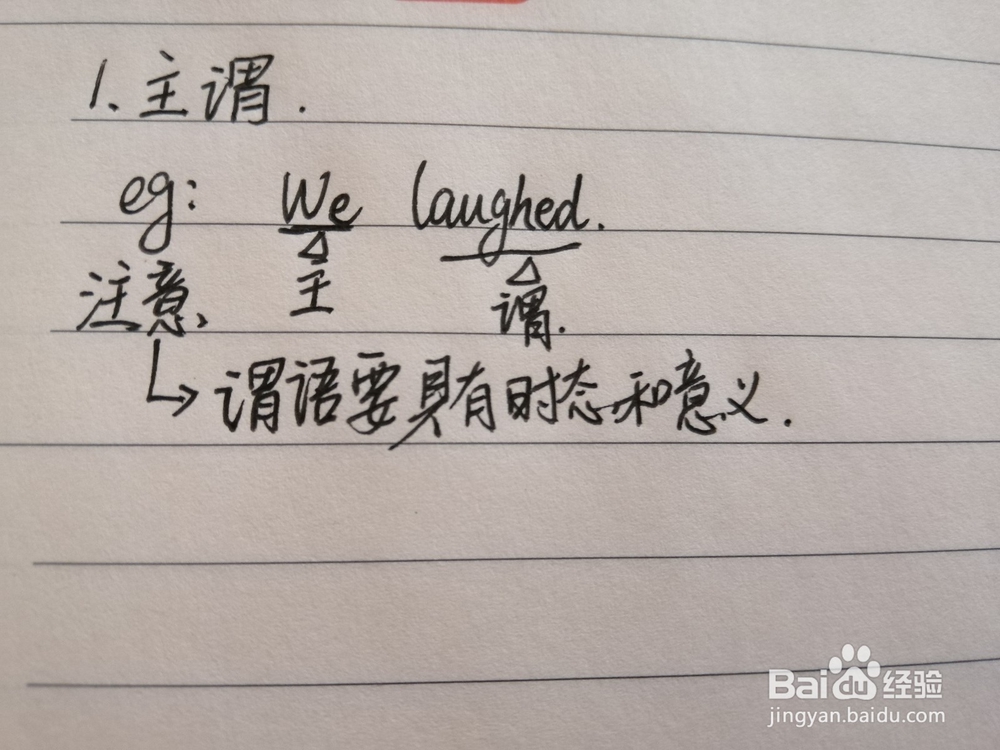 1、主谓.
eg: We laughed.
主 谓.
注意、
谓语要具有时态和意义.
Baidu经验
jingyan.baidu.com